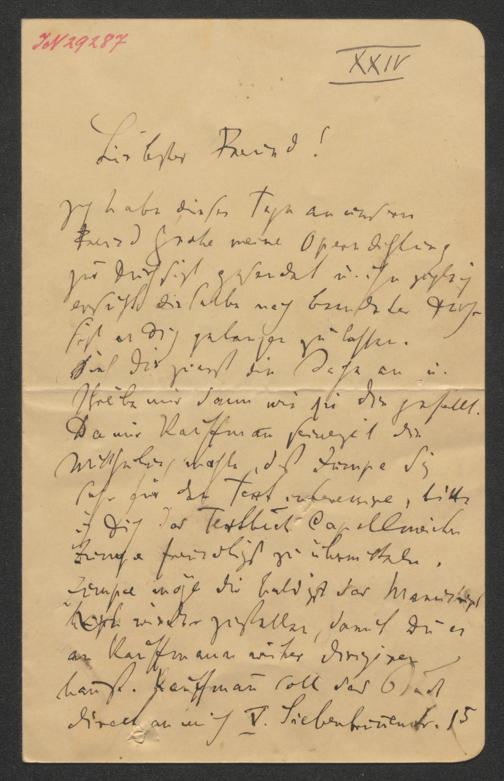 IN 29287
XXIV
Liebster Freund!
Ich habe dieser Tage an unsern
Freund Grohe meine Operndichtung
zur Durchsicht gesendet u. ihn zugleich
ersucht dieselbe nach beendeter Durch-
sicht an Dich gelangen zu lassen.
Sieh Dir die Sache an u.
schreibe mir dann wie sie Dir gefällt.
Da mir Kauffmann seinerzeit die
Mittheilung machte, daß Zumpe sich
sehr für den Text interessire, bitte
ich Dich das Textbuch Capellmeister
Zumpe freundlichst zu übermitteln.
Zumpe möge Dir baldigst das Manuscript
wieder zustellen, damit Du es
an Kauffmann weiter dirigiren
kannst. Kauffmann soll das Buch
direct an mich V. Siebenbrunnenstr. 15